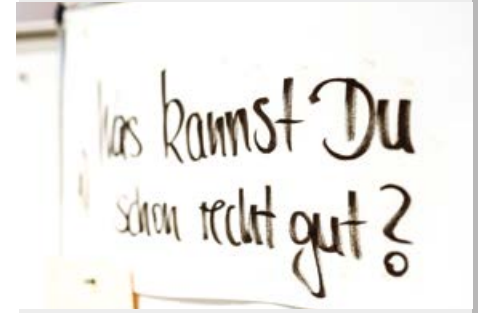 Was kannst Du
schon recht gut?